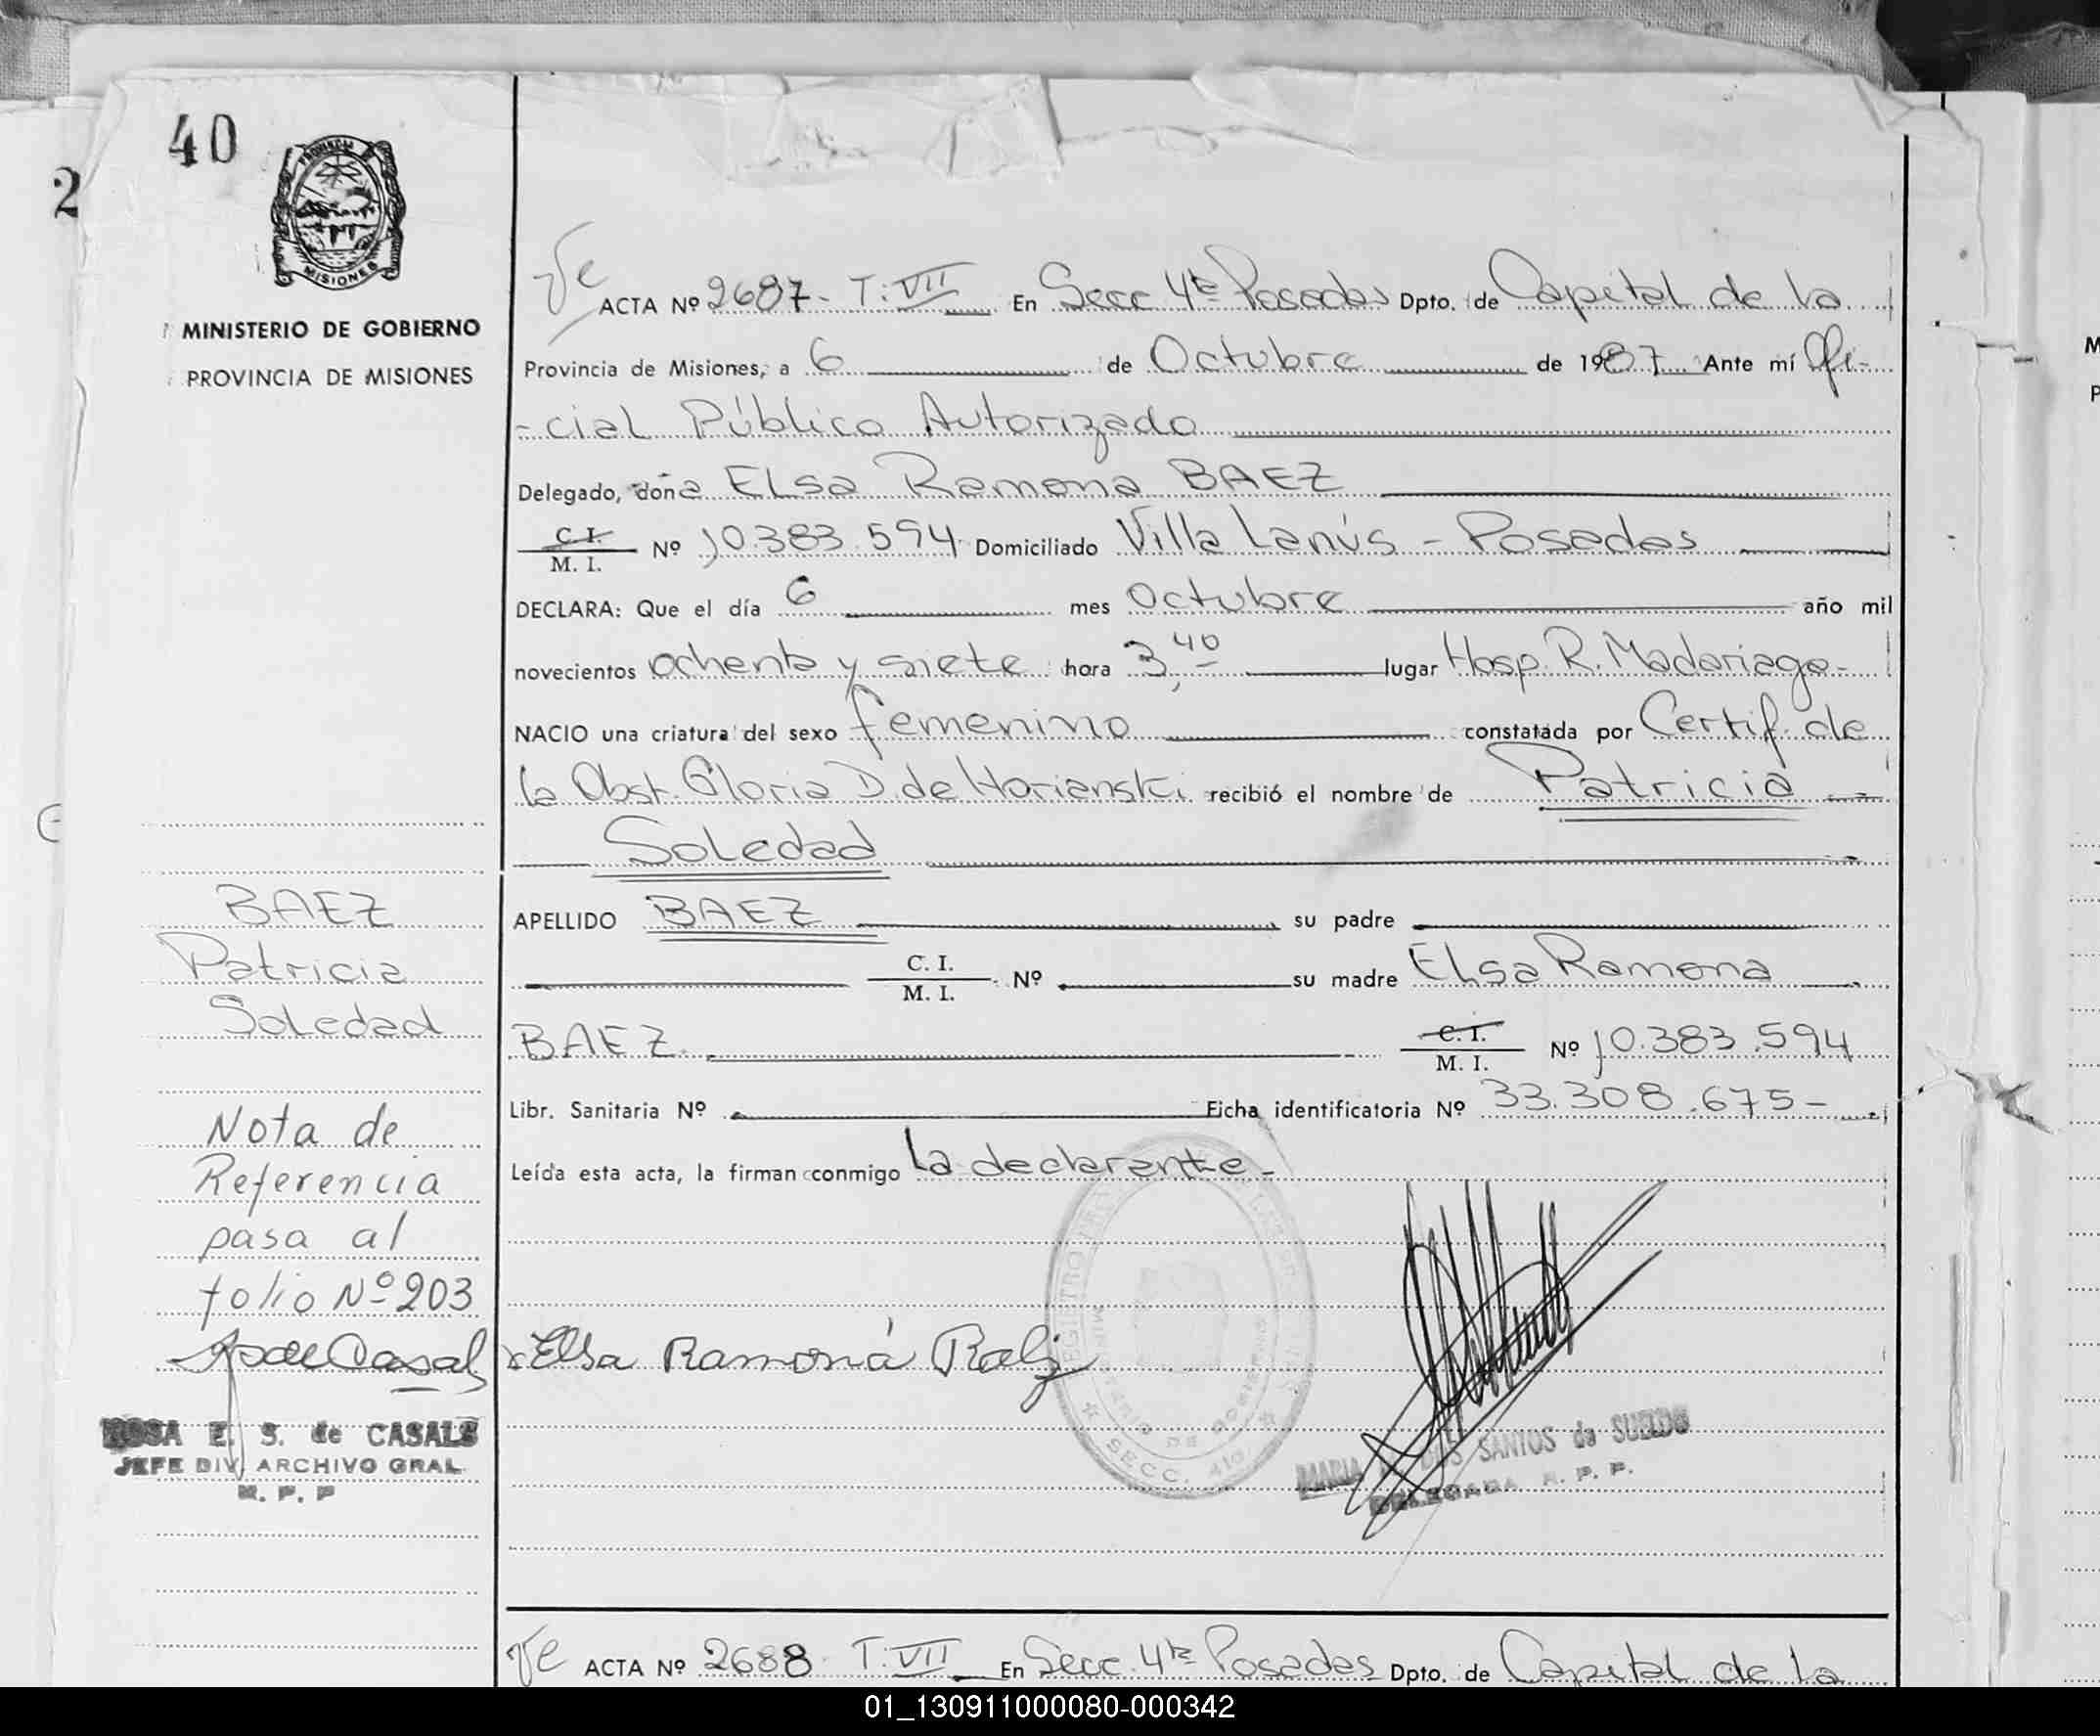 40
2
PROVINCIA DE
MISIONES
MINISTERIO DE GOBIERNO
PROVINCIA DE MISIONES
ACTA Nº 2687- T. VII En Secc 4ta Posadas Dpto. de Capital de la
Provincia de Misiones, a 6 de Octubre de 1987 Ante mí Ofi-
-cial Público Autorizado
Delegado, doña Elsa Ramona BAEZ
C. I.
M. I. Nº 10.383.594 Domiciliado Villa Lanús - Posadas
DECLARA: Que el día 6 mes Octubre año mil
novecientos ochenta y siete hora 3,40 lugar Hosp. R. Madariaga-
NACIO una criatura del sexo femenino constatada por Certif. de
la Obst. Gloria D. de Horianski recibió el nombre de Patricia
Soledad
APELLIDO BAEZ su padre
C. I.
M. I. Nº su madre Elsa Ramona
BAEZ C. I.
M. I. Nº 10.383.594
Libr. Sanitaria Nº Ficha identificatoria Nº 33.308.675-
Leída esta acta, la firman conmigo la declarante-
BAEZ
Patricia
Soledad
Nota de
Referencia
pasa al
folio Nº 203
ROSA E. S. de CASALS
JEFE DIV. ARCHIVO GRAL.
R. P. P
Elsa Ramona
SECC. 4ta
MARIA DOS SANTOS de SUELDO
DELEGADA R. P. P.
ACTA Nº 2688 T. VII En Secc. 4ta Posadas Dpto. de Capital de la
01_130911000080-000342